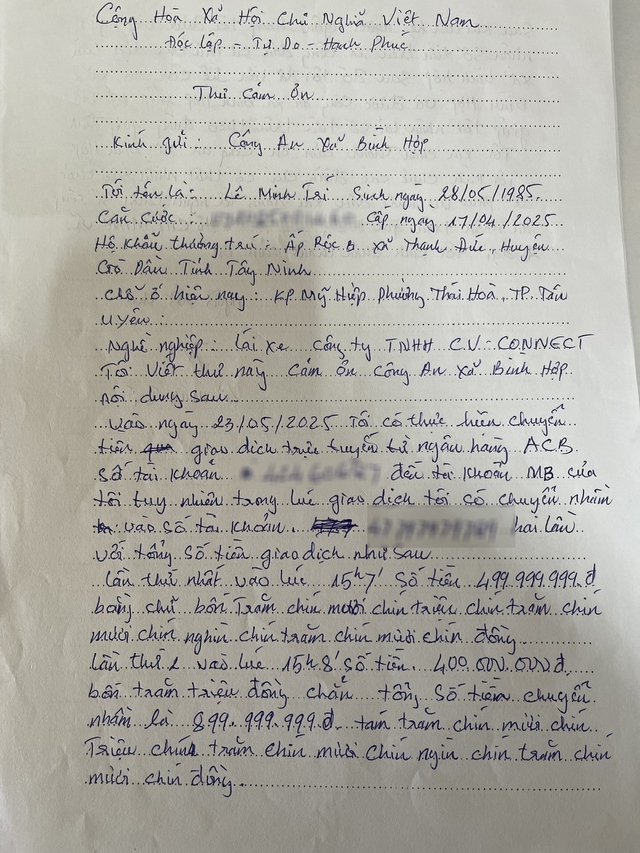 Cộng Hoà Xã Hội Chủ Nghĩa Việt Nam
Độc lập - Tự Do - Hạnh Phúc
Thư cảm ơn
Kính gửi: Công An Xã Bình Hợp
Tôi tên là: Lê Minh Trí Sinh ngày 28/05/1985.
Căn cước: Cấp ngày 17/04/2025
Hộ khẩu thường trú: Ấp Rộc B xã Thạnh Đức, Huyện
Gò Dầu Tỉnh Tây Ninh
Chỗ ở hiện nay: KP Mỹ Hiệp Phường Thái Hoà, TP. Tân
Uyên:
Nghề nghiệp: lái xe Công ty TNHH C.V-CONNECT
Tôi Viết thư này Cảm ơn Công An Xã Bình Hợp
nội dung sau
vào ngày 23/05/2025 Tôi có thực hiện chuyển
tiền giao dịch trực tuyến từ ngân hàng ACB
Số tài khoản đến tài khoản MB của
tôi tuy nhiên trong lúc giao dịch tôi có chuyển nhầm
vào số tài khoản hai lần
với tổng số tiền giao dịch như sau
lần thứ nhất vào lúc 15h7' Số tiền 499.999.999.đ
bằng chữ bốn Trăm chín mươi chín triệu chín trăm chín
mươi chín nghìn chín trăm chín mười chín đồng
lần thứ 2 vào lúc 15h8' số tiền 400.000.000đ
bốn trăm triệu đồng chẵn tổng số tiền chuyển
nhầm là 899.999.999.đ tám trăm chín mươi chín
Triệu chín trăm chín mươi chín ngìn chín trăm chín
mười chín đồng